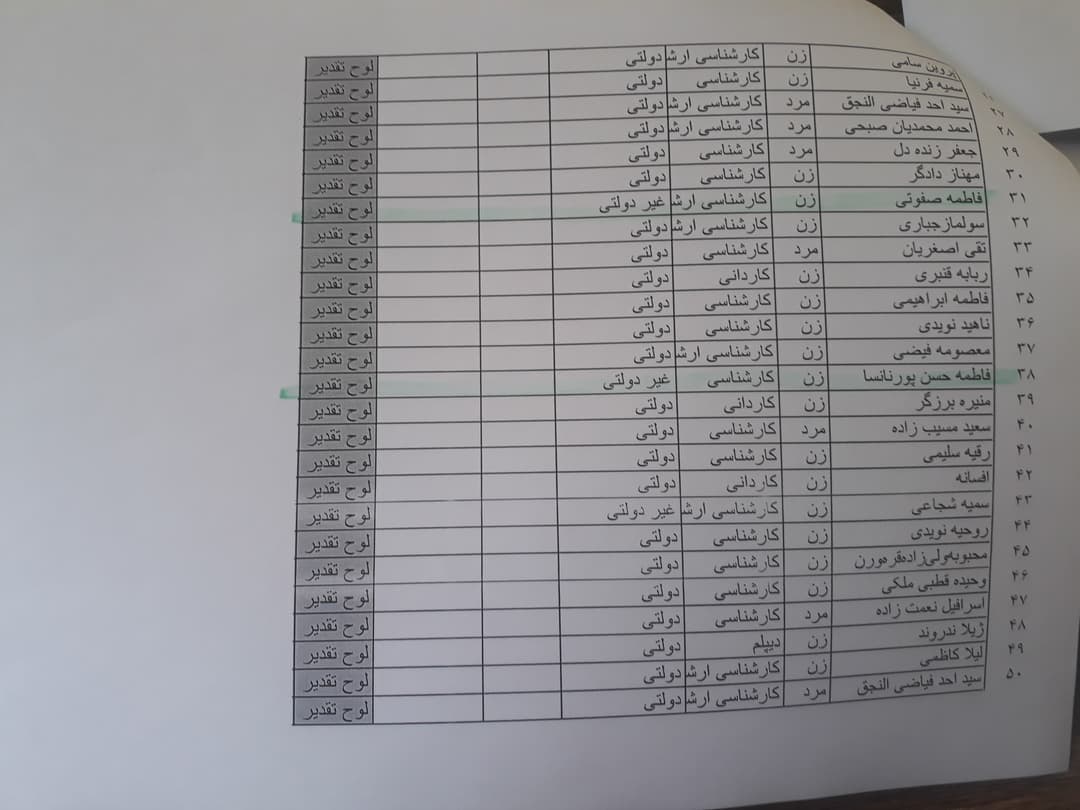 پروین سامی زن کارشناسی ارشد دولتی لوح تقدیر
سمیه فرنیا زن کارشناسی دولتی لوح تقدیر
۲۷ سید احد فیاضی النجق مرد کارشناسی ارشد دولتی لوح تقدیر
۲۸ احمد محمدیان صبحی مرد کارشناسی ارشد دولتی لوح تقدیر
۲۹ جعفر زنده دل مرد کارشناسی دولتی لوح تقدیر
۳۰ مهناز دادگر زن کارشناسی دولتی لوح تقدیر
۳۱ فاطمه صفوتی زن کارشناسی ارشد غیر دولتی لوح تقدیر
۳۲ سولماز جباری زن کارشناسی ارشد دولتی لوح تقدیر
۳۳ تقی اصغریان مرد کارشناسی دولتی لوح تقدیر
۳۴ ربابه قنبری زن کاردانی دولتی لوح تقدیر
۳۵ فاطمه ابراهیمی زن کارشناسی دولتی لوح تقدیر
۳۶ ناهید نویدی زن کارشناسی دولتی لوح تقدیر
۳۷ معصومه فیضی زن کارشناسی ارشد دولتی لوح تقدیر
۳۸ فاطمه حسن پورنانسا زن کارشناسی غیر دولتی لوح تقدیر
۳۹ منیره برزگر زن کاردانی دولتی لوح تقدیر
۴۰ سعید مسیب زاده مرد کارشناسی دولتی لوح تقدیر
۴۱ رقیه سلیمی زن کارشناسی دولتی لوح تقدیر
۴۲ افسانه زن کاردانی دولتی لوح تقدیر
۴۳ سمیه شجاعی زن کارشناسی ارشد غیر دولتی لوح تقدیر
۴۴ روحیه نویدی زن کارشناسی دولتی لوح تقدیر
۴۵ محبوبه‌ولی‌زاده‌قره‌ورن زن کارشناسی دولتی لوح تقدیر
۴۶ وحیده قطبی ملکی زن کارشناسی دولتی لوح تقدیر
۴۷ اسرافیل نعمت زاده مرد کارشناسی دولتی لوح تقدیر
۴۸ ژیلا ندروند زن دیپلم دولتی لوح تقدیر
۴۹ لیلا کاظمی زن کارشناسی ارشد دولتی لوح تقدیر
۵۰ سید احد فیاضی النجق مرد کارشناسی ارشد دولتی لوح تقدیر